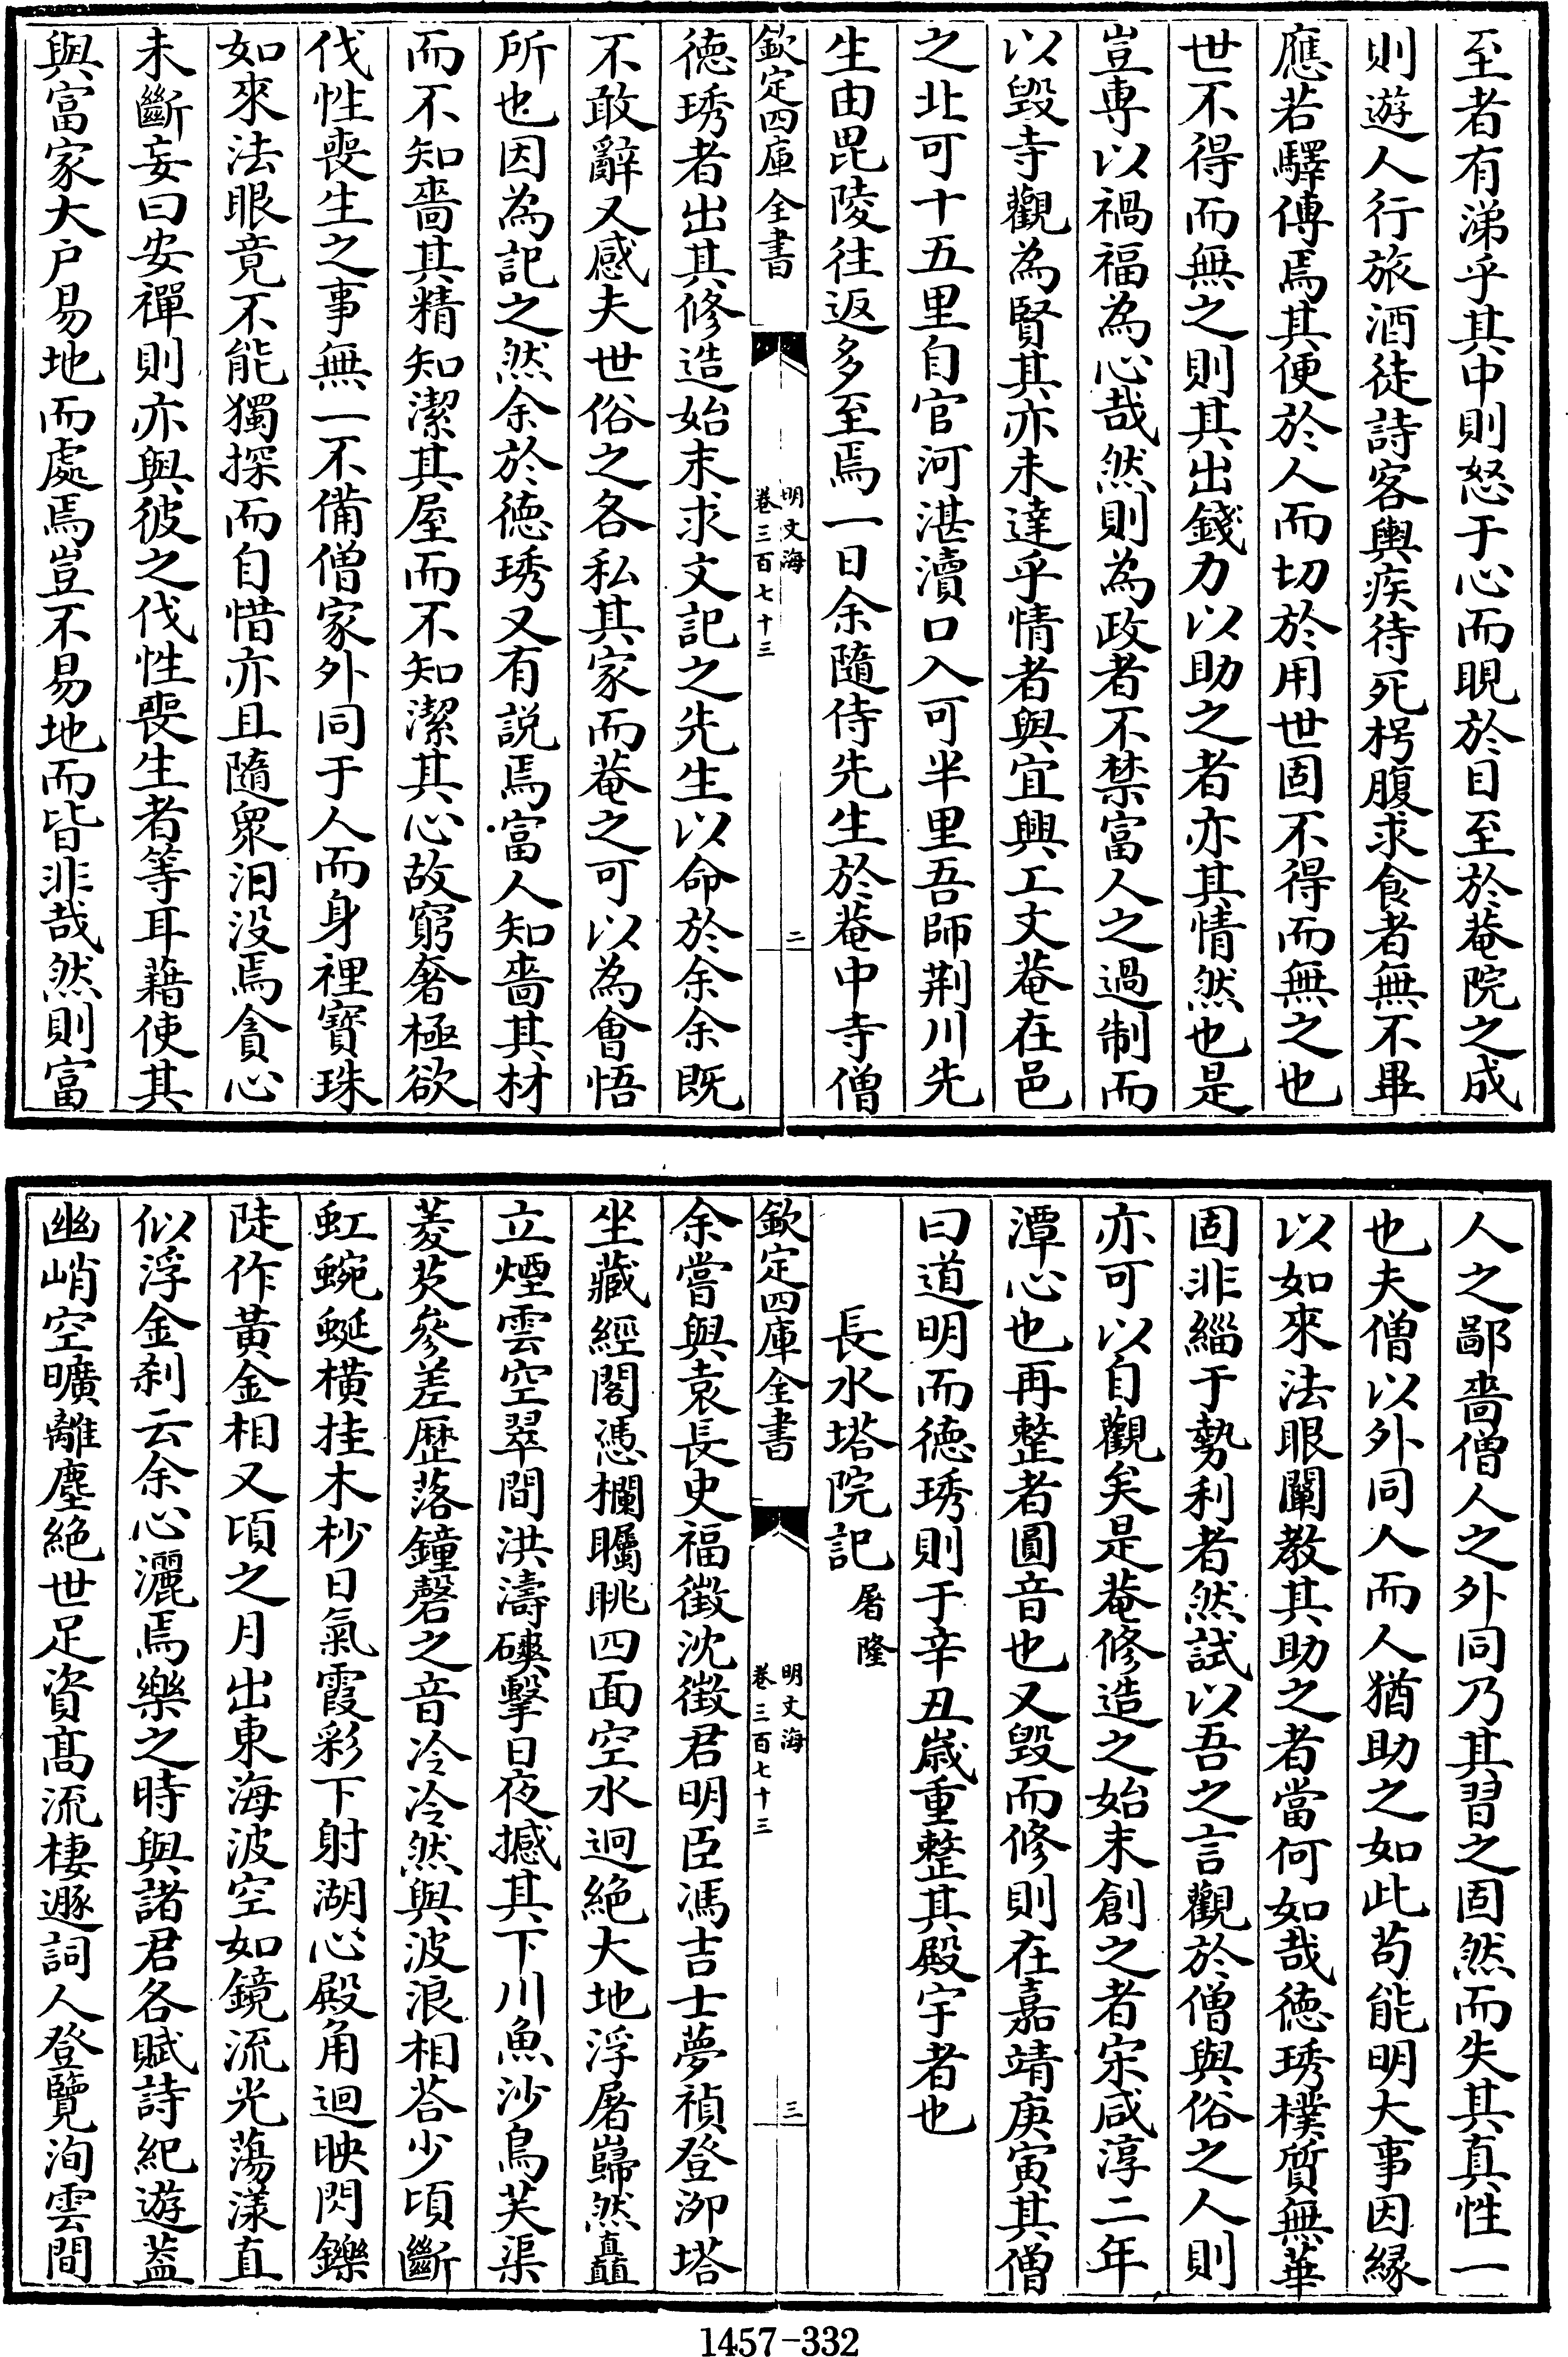 至者有涕乎其中則怒于心而睍於目至於菴院之成
則遊人行旅酒徒詩客輿疾待死枵腹求食者無不畢
應若驛傳焉其便於人而切於用世固不得而無之也
世不得而無之則其出錢力以助之者亦其情然也是
豈専以禍福為心哉然則為政者不禁富人之過制而
以毀寺觀為賢其亦未達乎情者與宜興工文菴在邑
之北可十五里自官河湛瀆口入可半里吾師荆川先
生由毘陵往返多至焉一日余隨侍先生於菴中寺僧
欽定四庫全書
明文海
卷三百七十三
二
徳琇者出其修造始末求文記之先生以命於余余既
不敢辭又感夫世俗之各私其家而菴之可以為會悟
所也因為記之然余於徳琇又有説焉富人知嗇其材
而不知嗇其精知潔其屋而不知潔其心故窮奢極欲
伐性喪生之事無一不備僧家外同于人而身裡寳珠
如來法眼竟不能獨探而自惜亦且隨衆汨没焉貪心
未斷妄曰安禪則亦與彼之伐性喪生者等耳藉使其
與富家大户易地而處焉豈不易地而皆非哉然則富
人之鄙嗇僧人之外同乃其習之固然而失其真性一
也夫僧以外同人而人猶助之如此苟能明大事因縁
以如來法眼闡教其助之者當何如哉徳琇樸質無華
固非緇于勢利者然試以吾之言觀於僧與俗之人則
亦可以自觀矣是菴修造之始末創之者宋咸淳二年
潭心也再整者圓音也又毀而修則在嘉靖庚寅其僧
曰道明而徳琇則于辛丑嵗重整其殿宇者也
長水塔院記 屠隆
欽定四庫全書
明文海
卷三百七十三
三
余嘗與袁長史福徴沈徴君明臣馮吉士夢禎登泖塔
坐藏經閣憑欄矚眺四面空水迥絶大地浮屠巋然矗
立煙雲空翠間洪濤磢擊日夜撼其下川魚沙鳥芙渠
菱芡參差歴落鐘磬之音冷冷然與波浪相荅少頃斷
虹蜿蜒横挂木杪日氣霞彩下射湖心殿角迴映閃鑠
陡作黃金相又頃之月出東海波空如鏡流光蕩漾直
似浮金刹云余心灑焉樂之時與諸君各賦詩紀遊葢
幽峭空曠離塵絶世足資髙流棲遯詞人登覽洵雲間
1457-332